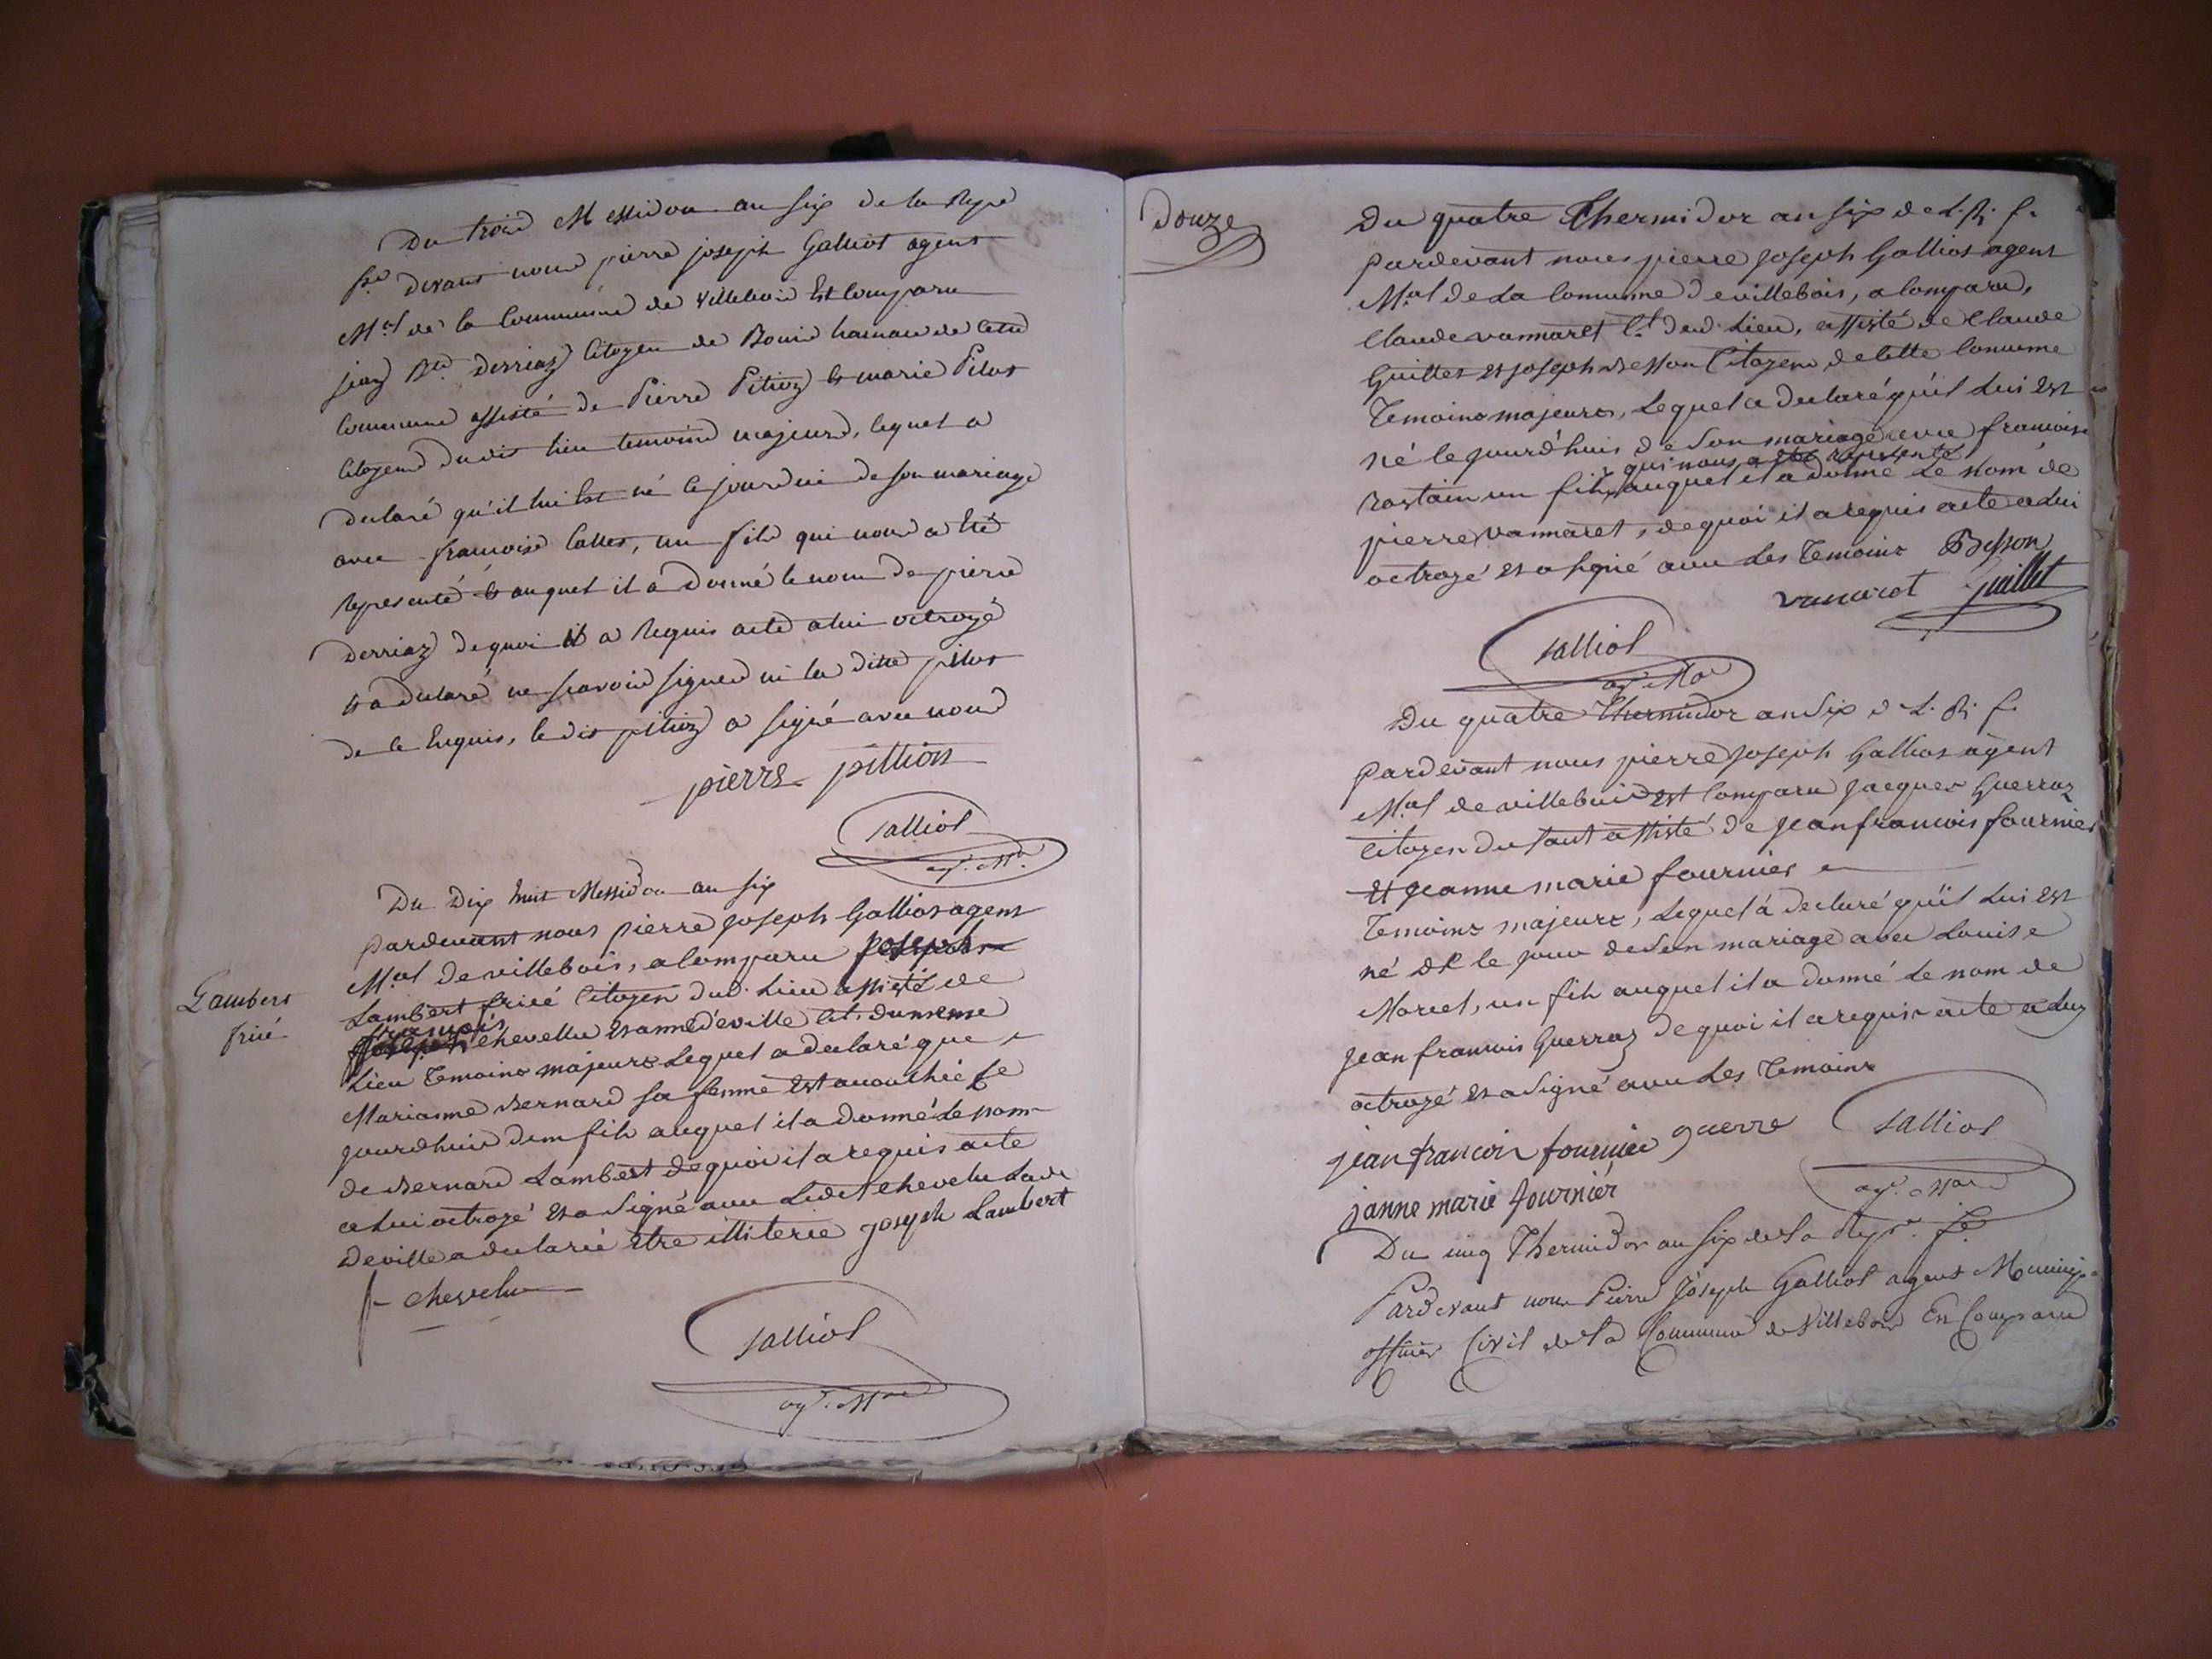 Du trois Messidor an six de la Repe
fse devant nous pierre joseph Galliot agent
Mal de la Commune de Villebois Est Comparu
jean Bte Derriaz Citoyen de Bouis hamau de Cette
Commune assisté de Pierre Pitioz et marie Pilot
Citoyens dudit lieu temoins majeurs, lequel a
declaré qu'il lui Est né ce jourdui de son mariage
avec francoise Caller, un fils qui nous a Eté
Representé & auquel il a Donné le nom De pierre
Derriaz De quoi il a Requis acte a lui octroyé
et a declaré ne scavoir signer ni la ditte pillot
de ce Enquis, le dit pitioz a signé avec nous
pierre pittion
Galliot
agt. Mal
Du Dix huit Messidor an six
Pardevant nous pierre Joseph Galliot agent
Mal de villebois, a Comparu joseph
Lambert frié Citoyen dud. Lieu assisté de
françois
joseph chevellu et anne deville Cit. du meme
Lambert
frié
Lieu Temoins majeurs Lequel a declaré que
Marianne Bernard sa femme Est accouchée Ce
jourdhuis d'un fils auquel il a donné Le nom
de Bernard Lambert de quoi il a requis acte
a Lui octroyé et a signé avec Ledit chevelu Lade
Deville a declarée être illiterée joseph Lambert
f chevelu
Galliot
agt. Mal
Douze
Du quatre Thermidor an six de L. R. f.
pardevant nous pierre Joseph Galliot agent
Mal de La Comunne de villebois, a Comparu,
Claude vannaret Ct. dud. Lieu, assisté de Claude
Guillet et joseph Besson Citoyens de Cette Comunne
Temoins majeurs, Lequel a declaré qu'il Lui est
né Le jourd'huis de Son mariage avec francoise
qui nous a été représenté
Rostain un fils, auquel il a donné Le nom de
pierre vannaret, de quoi il a requis acte a Lui
octroyé et a signé avec Les Temoins Besson
vanaret Guillet
Galliot
agt. Mal
Du quatre Thermidor an Six d L. R. f.
pardevant nous pierre Joseph Galliot agent
Mal de villebois est Comparu jacques Guerraz
Citoyen du Saut assisté de jean francois fournier
et jeanne marie fournier
Temoins majeurs, Lequel a declaré qu'il Lui est
né le jour de Son mariage avec Louise
Morel, un fils auquel il a donné Le nom de
jean francois Guerraz de quoi il a requis acte a Luy
octroyé et a signé avec Les Temoins
jean francoir fournier guerre Galliot
janne marie fournier agt. Mal
Du cinq Thermidor an six de La Repe. fe
Pardevant nous Pierre Joseph Galliot agent Municip.
officier Civil de La Commune de Villebois Est Comparu